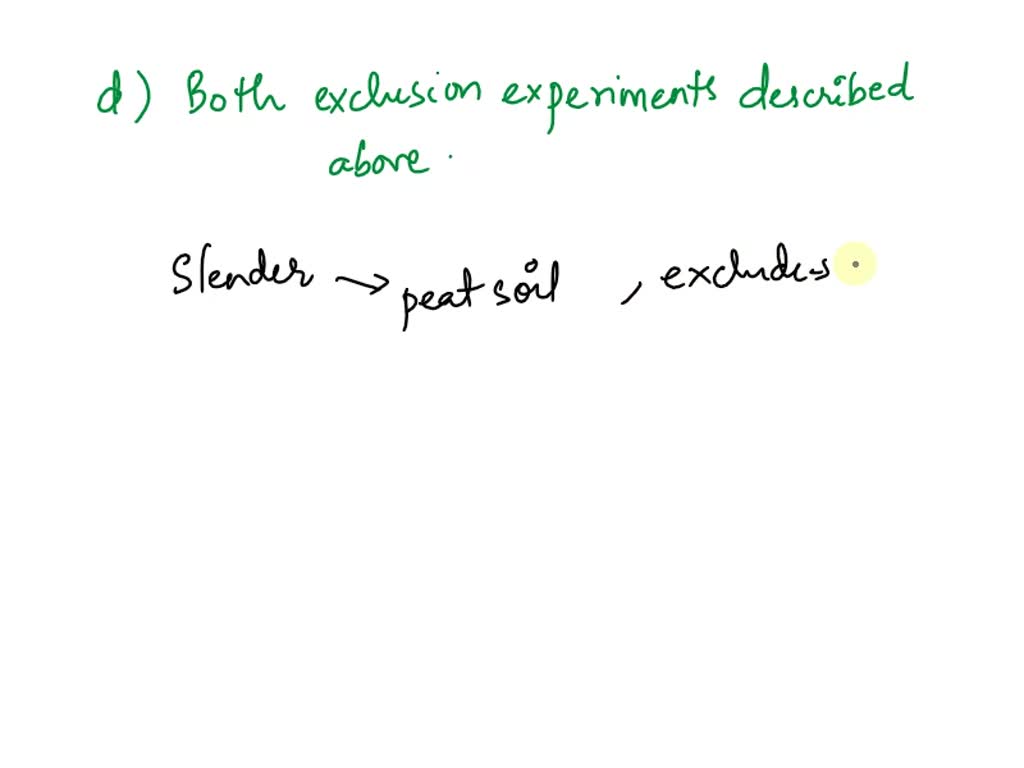 d) Both exclusion experiments described
above.
Slender → peat soil , excludes